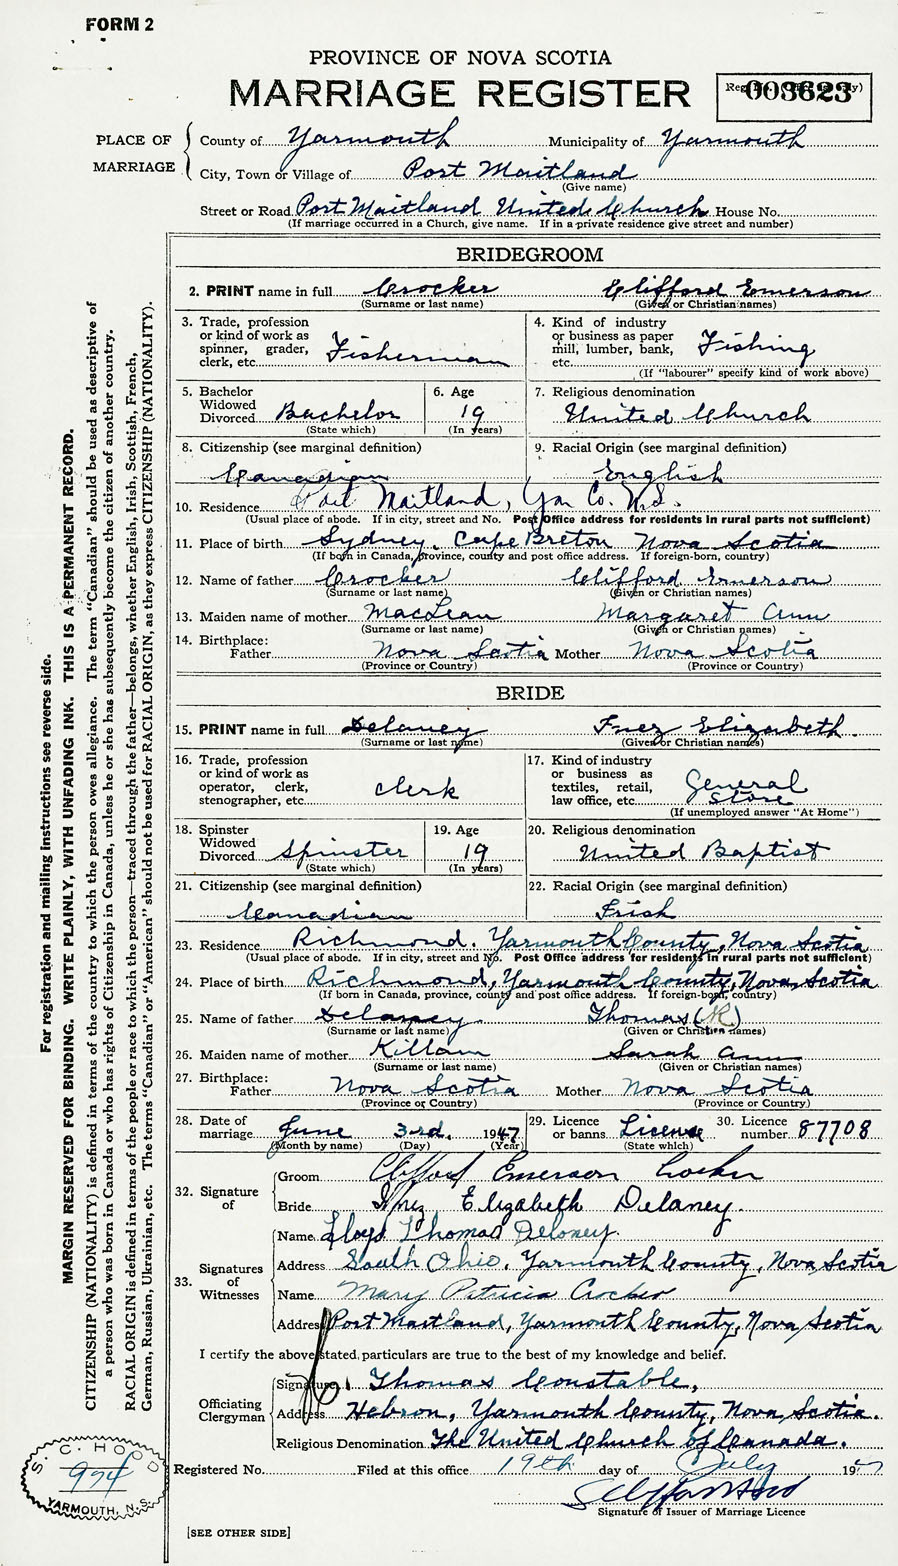 FORM 2
PROVINCE OF NOVA SCOTIA
MARRIAGE REGISTER
003623
PLACE OF MARRIAGE
County of Yarmouth Municipality of Yarmouth
City, Town or Village of Port Maitland
(Give name)
Street or Road Port Maitland United Church House No.
(If marriage occurred in a Church, give name. If in a private residence give street and number)
BRIDEGROOM
2. PRINT name in full Crocker Clifford Emerson
(Surname or last name) (Given or Christian names)
3. Trade, profession or kind of work as spinner, grader, clerk, etc. Fisherman
4. Kind of industry or business as paper mill, lumber, bank, etc. Fishing
(If "labourer" specify kind of work above)
5. Bachelor Widowed Divorced Bachelor
(State which)
6. Age 19
(In years)
7. Religious denomination
United Church
8. Citizenship (see marginal definition)
Canadian
9. Racial Origin (see marginal definition)
English
10. Residence Port Maitland, Yar Co. N.S.
(Usual place of abode. If in city, street and No. Post Office address for residents in rural parts not sufficient)
11. Place of birth Sydney, Cape Breton Nova Scotia
(If born in Canada, province, county and post office address. If foreign-born, country)
12. Name of father Crocker Clifford Emerson
(Surname or last name) (Given or Christian names)
13. Maiden name of mother MacLean Margaret Ann
(Surname or last name) (Given or Christian names)
14. Birthplace:
Father Nova Scotia Mother Nova Scotia
(Province or Country) (Province or Country)
BRIDE
15. PRINT name in full Delaney Inez Elizabeth.
(Surname or last name) (Given or Christian names)
16. Trade, profession or kind of work as operator, clerk, stenographer, etc. Clerk
17. Kind of industry or business as textiles, retail, law office, etc. General Store
(If unemployed answer "At Home")
18. Spinster Widowed Divorced Spinster
(State which)
19. Age 19
(In years)
20. Religious denomination
United Baptist
21. Citizenship (see marginal definition)
Canadian
22. Racial Origin (see marginal definition)
Irish
23. Residence Richmond, Yarmouth County, Nova Scotia
(Usual place of abode. If in city, street and No. Post Office address for residents in rural parts not sufficient)
24. Place of birth Richmond, Yarmouth County, Nova Scotia
(If born in Canada, province, county and post office address. If foreign-born, country)
25. Name of father Delaney Thomas (R)
(Surname or last name) (Given or Christian names)
26. Maiden name of mother Killam Sarah Ann
(Surname or last name) (Given or Christian names)
27. Birthplace:
Father Nova Scotia Mother Nova Scotia
(Province or Country) (Province or Country)
28. Date of marriage June 3rd. 1947
(Month by name) (Day) (Year)
29. Licence or banns License
(State which)
30. Licence number 87708
32. Signature of
Groom Clifford Emerson Crocker
Bride Inez Elizabeth Delaney.
33. Signatures of Witnesses
Name Lloyd Thomas Delaney.
Address South Ohio, Yarmouth County, Nova Scotia
Name Mary Patricia Crocker
Address Port Maitland, Yarmouth County, Nova Scotia
I certify the above stated particulars are true to the best of my knowledge and belief.
Officiating Clergyman
Signature Thomas Constable,
Address Hebron, Yarmouth County, Nova Scotia.
Religious Denomination The United Church of Canada.
Registered No. Filed at this office 19th day of July 19
Signature of Issuer of Marriage Licence
[SEE OTHER SIDE]
S. C. HOOD
974
YARMOUTH, N.S.
For registration and mailing instructions see reverse side.
MARGIN RESERVED FOR BINDING. WRITE PLAINLY, WITH UNFADING INK. THIS IS A PERMANENT RECORD.
CITIZENSHIP (NATIONALITY) is defined in terms of the country to which the person owes allegiance. The term "Canadian" should be used as descriptive of
a person who was born in Canada or who has rights of Citizenship in Canada, unless he or she has subsequently become the citizen of another country.
RACIAL ORIGIN is defined in terms of the people or race to which the person—traced through the father—belongs, whether English, Irish, Scottish, French,
German, Russian, Ukrainian, etc. The terms "Canadian" or "American" should not be used for RACIAL ORIGIN, as they express CITIZENSHIP (NATIONALITY).